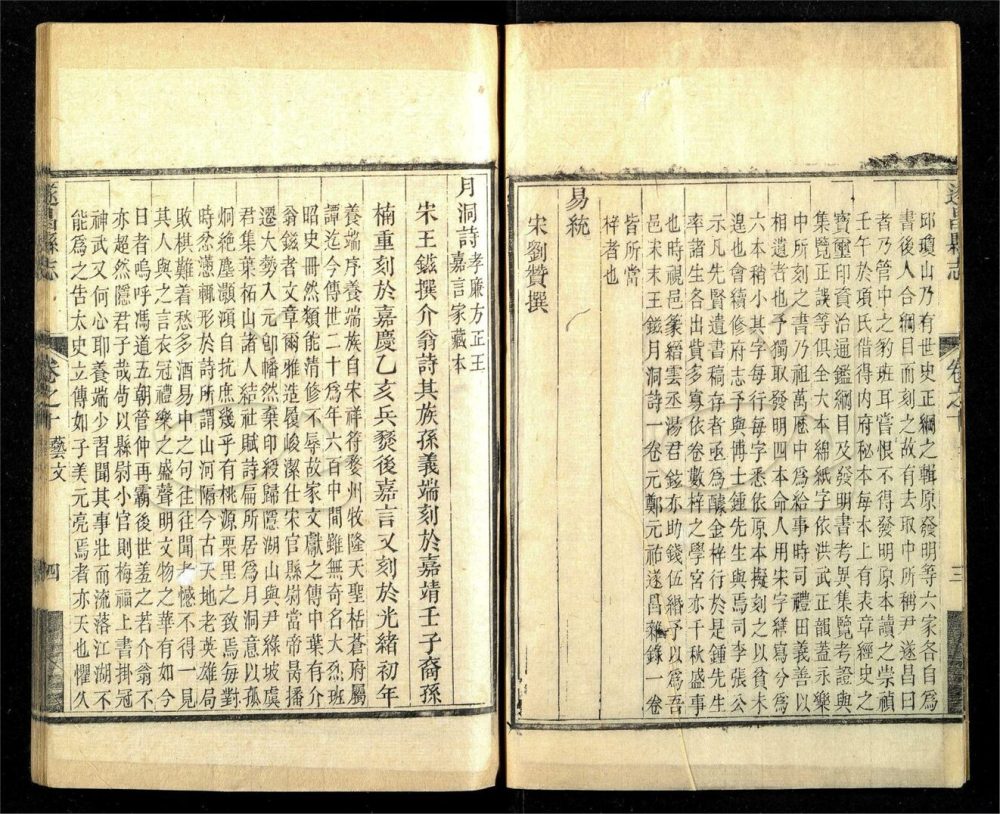 邱瓊山乃有世史正綱之輯原發明等六家各自為
書後人合綱目而刻之故有去取中所稱尹遂昌曰
者乃管中之豹班耳嘗恨不得發明原本讀之崇禎
壬午於項氏借得內府秘本每本上有表章經史之
寶璽印資治通鑑綱目及發明書考異集覽考證與
集覽正誤等俱全大本綿紙字依洪武正韻蓋永樂
中所刻之書乃祖萬歷中為給事時司禮田義善以
相遺者也予獨取發明四本命人用宋字繕寫分為
六本稍小其字每行每字悉依原本擬刻之以貧未
遑也會續修府志予與博士鍾先生與焉司李張公
示凡先賢遺書稿存者亟為醵金梓行於是鍾先生
率諸生各出貲多寡依卷數梓之學宮亦千秋盛事
也時視邑篆縉雲丞湯君鉉亦助錢伍緡予以為吾
邑宋末王鎡月洞詩一卷元鄭元祐遂昌雜錄一卷
皆所當
梓者也
易統
宋劉贊撰
遂昌縣志
卷之十
三
月洞詩
孝廉方正王
嘉言家藏本
宋王鎡撰介翁詩其族孫義端刻於嘉靖壬子裔孫
楠重刻於嘉慶乙亥兵燹後嘉言又刻於光緒初年
養端序養端族自宋祥符婺州牧隆天聖枯蒼府屬
譚迄今傳世二十為年六百中間雖無奇名大烈班
昭史冊然類能清修不辱故家文獻之傳中葉有介
翁鎡者文章爾雅造履峻潔仕宋官縣尉當帝昺播
遷大勢入元卽幡然棄印綬歸隱湖山與尹綠坡虞
君集葉柘山諸人結社賦詩扁所居為月洞意以孤
炯絶塵瀕澒自抗庶幾乎有桃源栗里之致焉每對
時忿懣輒形於詩所謂山河隔今古天地老英雄局
敗棋難着愁多酒易中之句往往聞者憾不得一見
其人與之言衣冠禮樂之盛聲明文物之華有如今
日者嗚呼馮道五朝管仲再霸後世羞之若介翁不
亦超然隱君子哉尚以縣尉小官則梅福上書掛冠
神武又何心耶養端少習聞其事壯而流落江湖不
能為之告太史立傳如子美元亮焉者亦天也懼久
遂昌縣志
卷之十
藝文
四